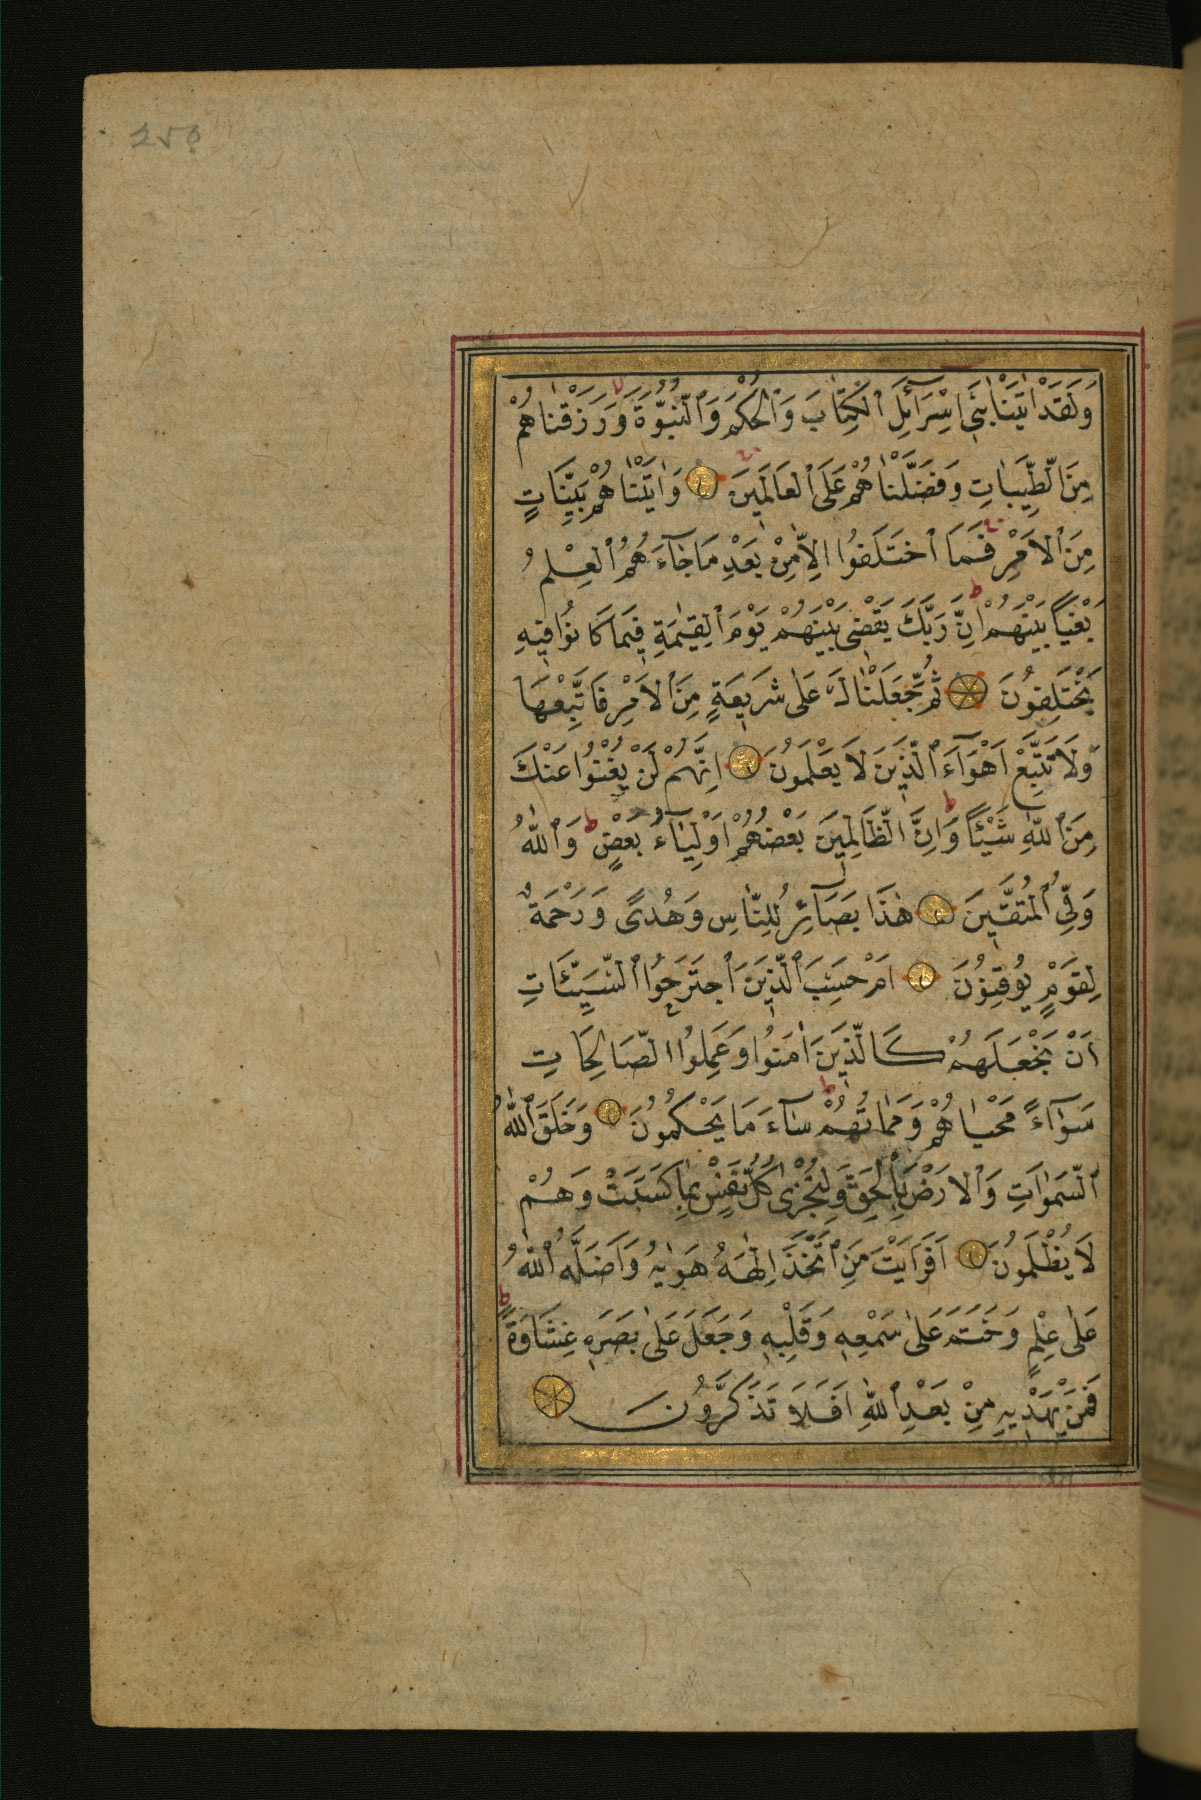 ٢٥٥
وَلَقَدْ اٰتَيْنَا بَنٖٓي اِسْرَٓائٖلَ ٱلْكِتَابَ وَٱلْحُكْمَ وَٱلنُّبُوَّةَ وَرَزَقْنَاهُمْ
مِنَ ٱلطَّيِّبَاتِ وَفَضَّلْنَاهُمْ عَلَى ٱلْعَالَمٖينَ وَاٰتَيْنَاهُمْ بَيِّنَاتٍ
مِنَ ٱلْاَمْرِ فَمَا ٱخْتَلَفُوا اِلَّا مِنْ بَعْدِ مَا جَٓاءَهُمُ ٱلْعِلْمُ
بَغْيًا بَيْنَهُمْ اِنَّ رَبَّكَ يَقْضٖي بَيْنَهُمْ يَوْمَ ٱلْقِيٰمَةِ فٖيمَا كَانُوا فٖيهِ
يَخْتَلِفُونَ ثُمَّ جَعَلْنَاكَ عَلٰى شَرٖيعَةٍ مِنَ ٱلْاَمْرِ فَاتَّبِعْهَا
وَلَا تَتَّبِعْ اَهْوَٓاءَ ٱلَّذٖينَ لَا يَعْلَمُونَ اِنَّهُمْ لَنْ يُغْنُوا عَنْكَ
مِنَ ٱللّٰهِ شَيْئًا وَاِنَّ الظَّالِمٖينَ بَعْضُهُمْ اَوْلِيَٓاءُ بَعْضٍ وَٱللّٰهُ
وَلِيُّ ٱلْمُتَّقٖينَ هٰذَا بَصَٓائِرُ لِلنَّاسِ وَهُدًى وَرَحْمَةٌ
لِقَوْمٍ يُوقِنُونَ اَمْ حَسِبَ ٱلَّذٖينَ ٱجْتَرَحُوا ٱلسَّيِّئَاتِ
اَنْ نَجْعَلَهُمْ كَالَّذٖينَ اٰمَنُوا وَعَمِلُوا الصَّالِحَاتِ
سَوَٓاءً مَحْيَاهُمْ وَمَمَاتُهُمْ سَٓاءَ مَا يَحْكُمُونَ وَخَلَقَ ٱللّٰهُ
ٱلسَّمٰوَاتِ وَٱلْارَضَ بِٱلْحَقِّ وَلِتُجْزٰى كُلُّ نَفْسٍ بِمَا كَسَبَتْ وَهُمْ
لَا يُظْلَمُونَ اَفَرَاَيْتَ مَنِ ٱتَّخَذَ اِلٰهَهُ هَوٰيهُ وَاَضَلَّهُ ٱللّٰهُ
عَلٰى عِلْمٍ وَخَتَمَ عَلٰى سَمْعِهٖ وَقَلْبِهٖ وَجَعَلَ عَلٰى بَصَرِهٖ غِشَاوَةً
فَمَنْ يَهْدٖيهِ مِنْ بَعْدِ ٱللّٰهِ اَفَلَا تَذَكَّرُونَ